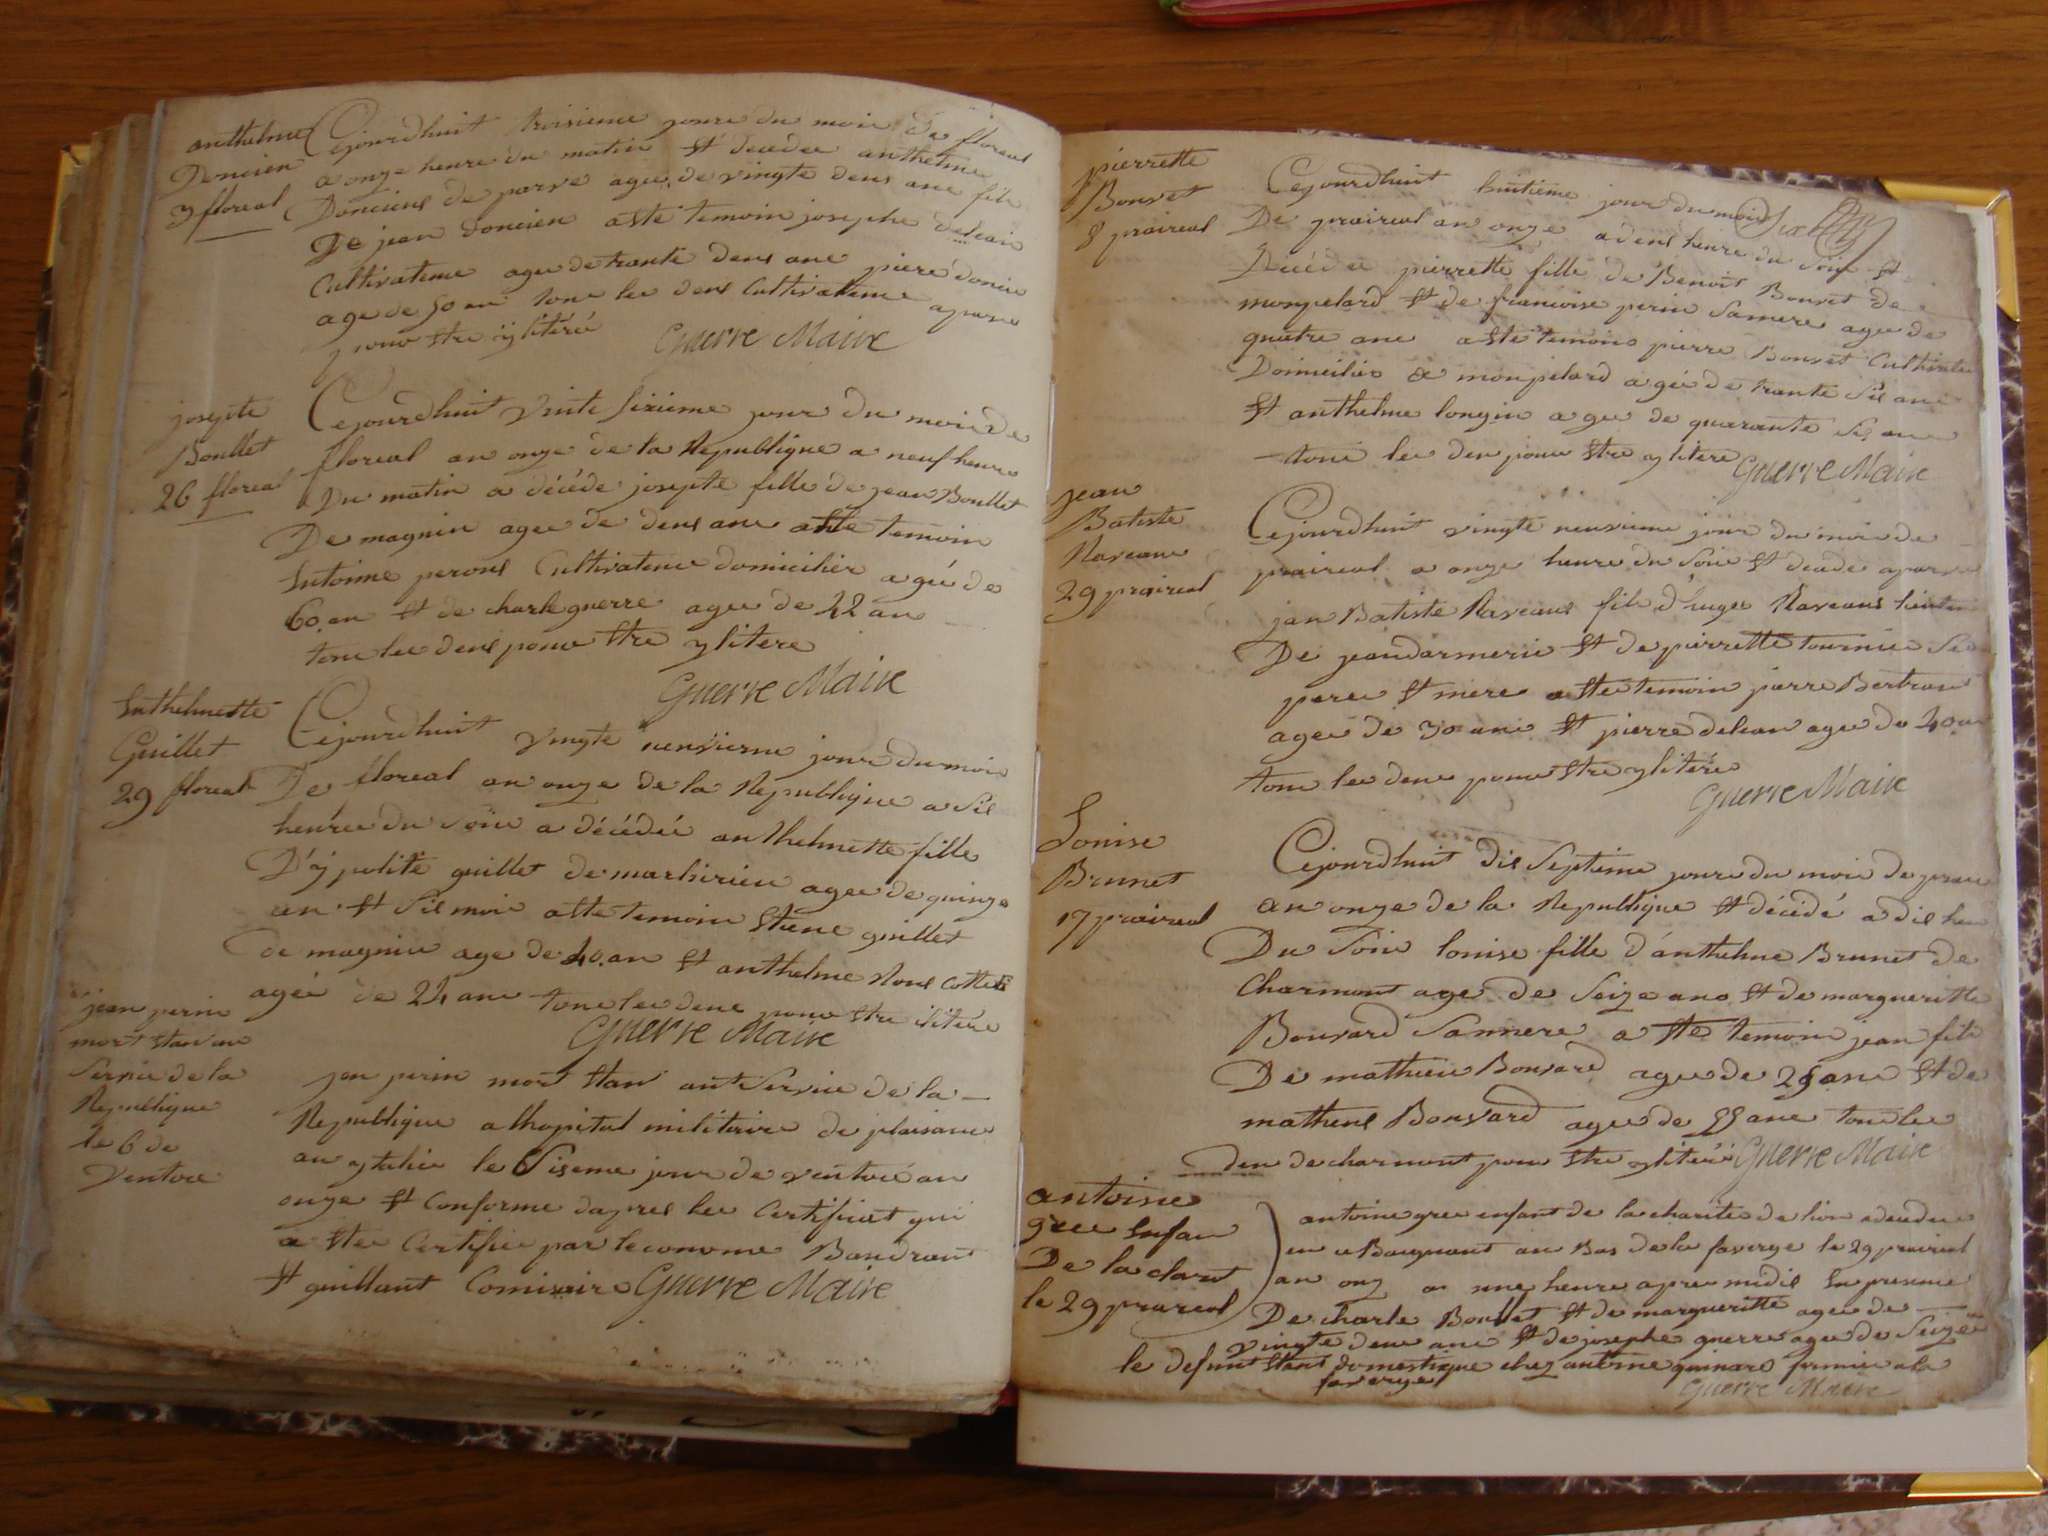 anthelme
Doncien
3 floreal
Cejourdhuit troisieme jour du mois de floreal
a onze heure du matin st decedee anthelme
Donciens de parve agee de vingte deus ans fils
De jean doncien a sté temoin josephe deleain
Cultivateure agee de trante deus ans piere doncien
age de 50 an tous les deus Cultivateure a parve
pour stre y litéré
Guerre Maire
josepte
Boullet
26 floreal
Cejourdhuit vinte sixieme jour du mois de
floreal an onze de la Republique a neuf heure
Du matin a décéde josepte fille de jean Boullet
De magnin agee de deus ans a sté temoin
Antoinne perons Cultivateur domicilier a gée de
60 an st de charle guerre agee de 22 an
tous les deus pour stre y litere
Guerre Maire
Anthelmette
Guillet
29 floreal
Cejourdhuit vingte neuvieme jour du mois
De floreal an onze de la Republique a sis
heures du soir a décédée anthelmette fille
D'ypolité guillet de marhirieu agee de quinze
an st sis mois a sté temoin stiene guillet
de magnieu age de 40 an st anthelme Rous
agée de 24 ans tous les deus pour stre iliteré
Guerre Maire
jean perin
mort stan au
service de la
Republique
le 6 de
ventose
jean perin mort stan aut service de la
Republique a lhopital militaire de plaisance
an ytalie le siseme jour de ventose an
onze st conforme dapres les certificat qui
a stée certifiée par leconome Baudrant
st guillant Comisaire Guerre Maire
pierrette
Bonvet
8 praireal
Cejourdhuit huitieme jour du mois
De praireal an onze a deus heure du soir st
Décédee pierrette fille de Benoit Bonvet de
monpelard st de francoise perin samere agee de
quatre ans a sté temoins pierre Bonvet Cultivateur
Domicilier a monpelard a gée de trante sis ans
st anthelme longin a gee de quarante sis ans
tous les deu pour stre y litere Guerre Maire
jean
Batiste
Raveaus
29 praireal
Cejourdhuit vingte neuvieme jour du mois de
praireal a onze heure du soir st decede a parve
jan Batiste Raveaus fils d'huges Raveaus lieutenant
De jeandarmerie st de pierrette tournier ses
peres st mere a sté temoin pierre Bertrand
agée de 30 ans st pierre delean agee de 40 an
tous les deus pour stre y litére
Guerre Maire
Louise
Brunet
17 praireal
Cejourdhuit dis septieme jour du mois de prai
an onze de la Republique st décédé a dis heu
Du soir louise fille d'anthelme Brunet de
Charmont age de seize ans st de margueritte
Bouvard sanmere a sté temoin jean fils
De mathieu Bonvard agee de 25 ans st de
matheus Bonvard agee de 55 ans tous les
deu de charmont pour stre y literé Guerre Maire
antoine
gree enfan
De la charit
le 29 prareal
antoine gree enfant de la charite de lion a decedee
en ce Baignant au Bas de la faverge le 29 prairial
an onz a une heure apres midis en presence
De charle Boullet st de margueritte agee de
vingte deus ans st de josephe guerre agee de seize
le defunt stant domestique chez antoine guinard fermier a la
faverge
Guerre Maire